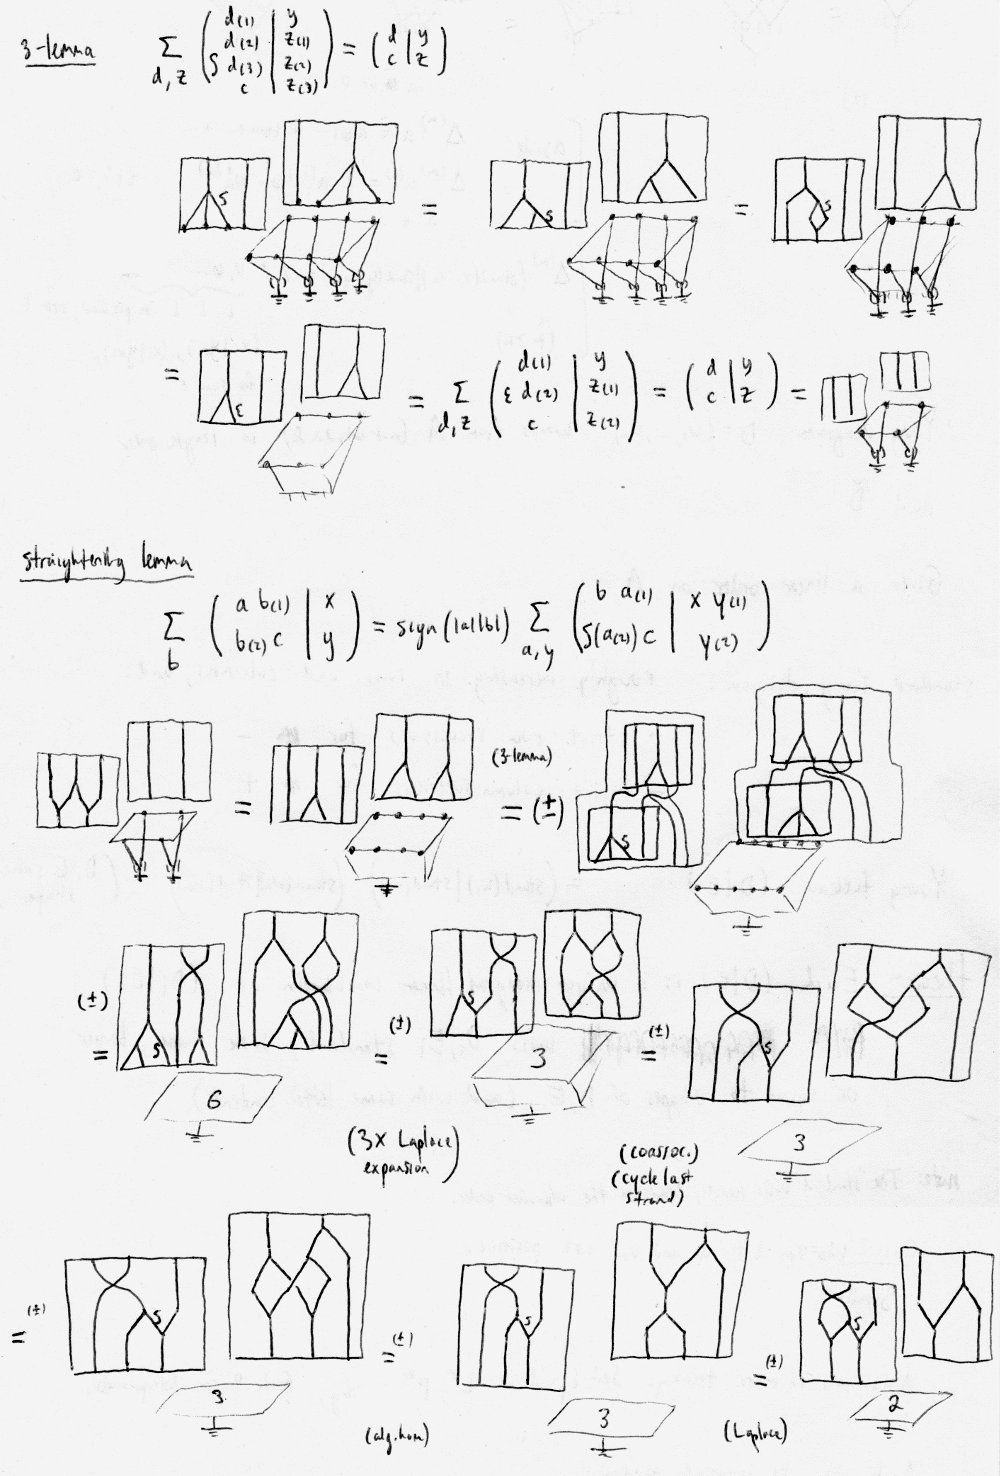 3-lemma
∑ d,z ( d(1) d(2) S d(3) c | y z(1) z(2) z(3) ) = ( d c | y z )
S = S = S
= ε = ∑ d,z ( d(1) ε d(2) c | y z(1) z(2) ) = ( d c | y z ) =
straightening lemma
∑ b ( a b(1) b(2) c | x y ) = sign(|a||b|) ∑ a,y ( b a(1) S(a(2)) c | x y(1) y(2) )
(3-lemma)
= = (±) S
(±) = S 6 (±) = S 3 (±) = S 3
(3x Laplace expansion)
(coassoc.)
(cycle last strand)
= (±) S 3 = (±) S 3 = (±) S 2
(alg. hom)
(Laplace)